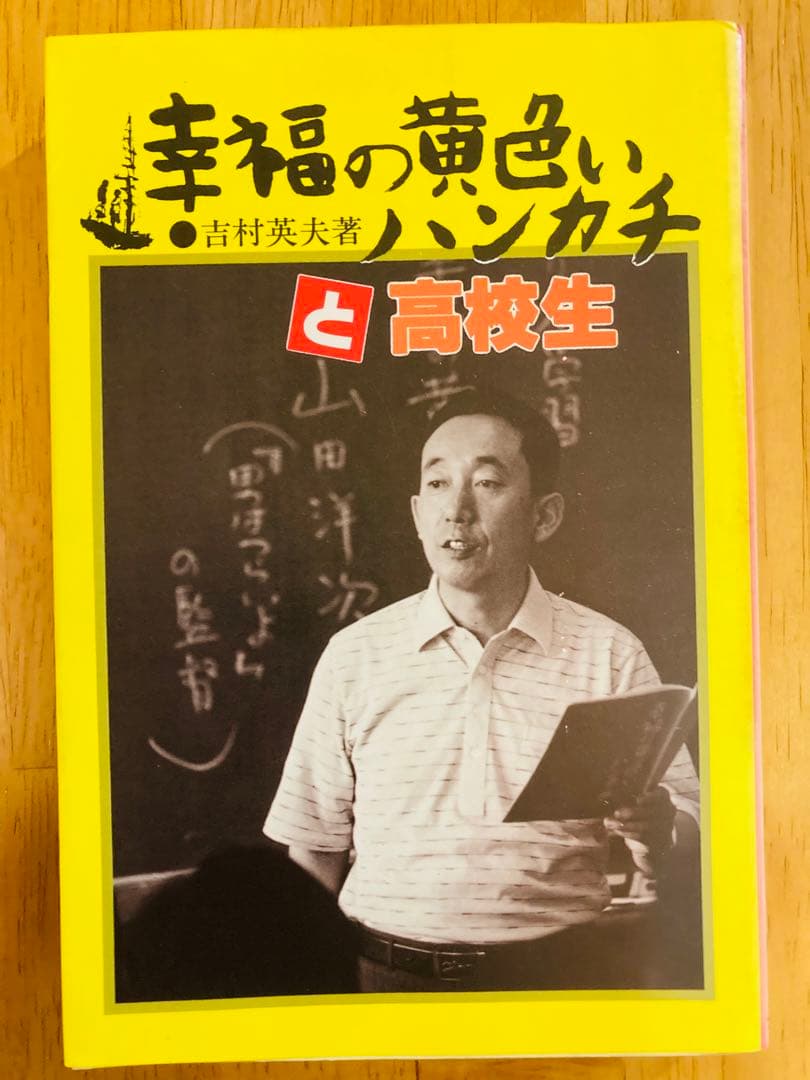 幸福の黄色い
ハンカチ
吉村英夫著
と高校生
学習
山田洋次
(『男はつらいよ』
の監督)